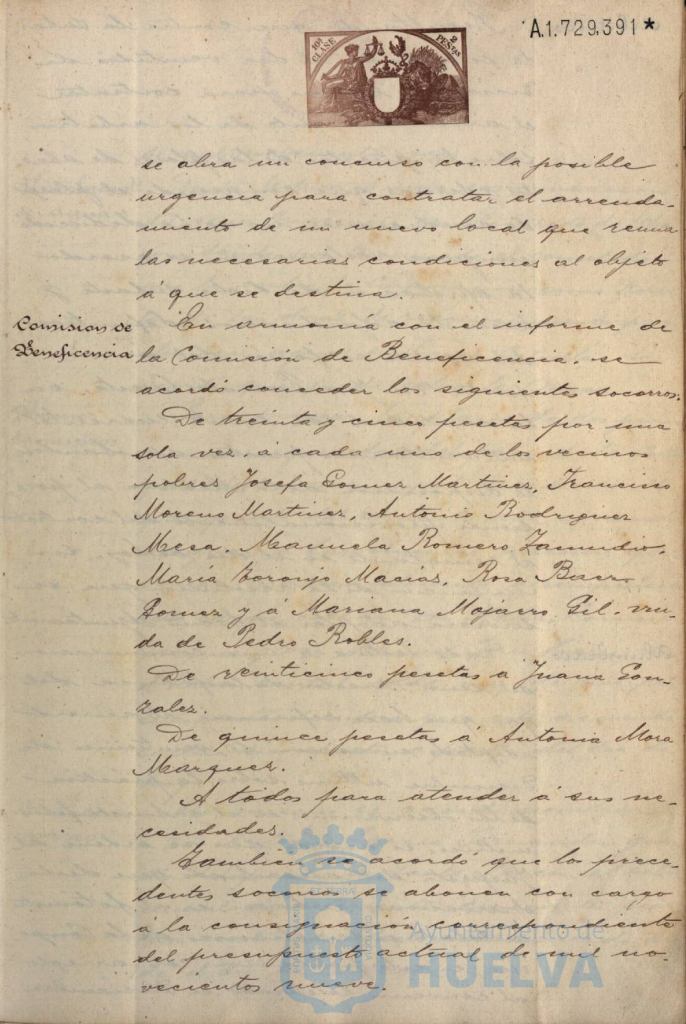 10ª CLASE
2 PESETAS
A.1.729,391*
se abra un concurso con la posible
urgencia para contratar el arrenda-
miento de un nuevo local que reuna
las necesarias condiciones al objeto
á que se destina.
Comision de
Beneficencia
En armonía con el informe de
la Comisión de Beneficencia, se
acordó conceder los siguientes socorros.
De treinta y cinco pesetas por una
sola vez, á cada uno de los vecinos
pobres Josefa Gomez Martinez, Francisco
Moreno Martinez, Antonio Rodriguez
Mesa, Manuela Romero Zamudio,
María Toronjo Macías, Rosa Baez
Gomez y á Mariana Mojarro Gil, viu-
da de Pedro Robles.
De veinticinco pesetas á Juana Gon-
zalez.
De quince pesetas á Antonia Mora
Marquez.
A todos para atender á sus ne-
cesidades.
También se acordó que los prece-
dentes socorros se abonen con cargo
á la consignación correspondiente
del presupuesto actual de mil no-
vecientos nueve.
Ayuntamiento de
HUELVA